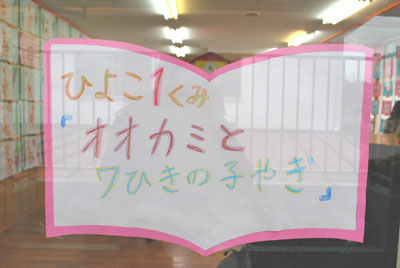 ひよこ1くみ
『オオカミと
7ひきの子やぎ』